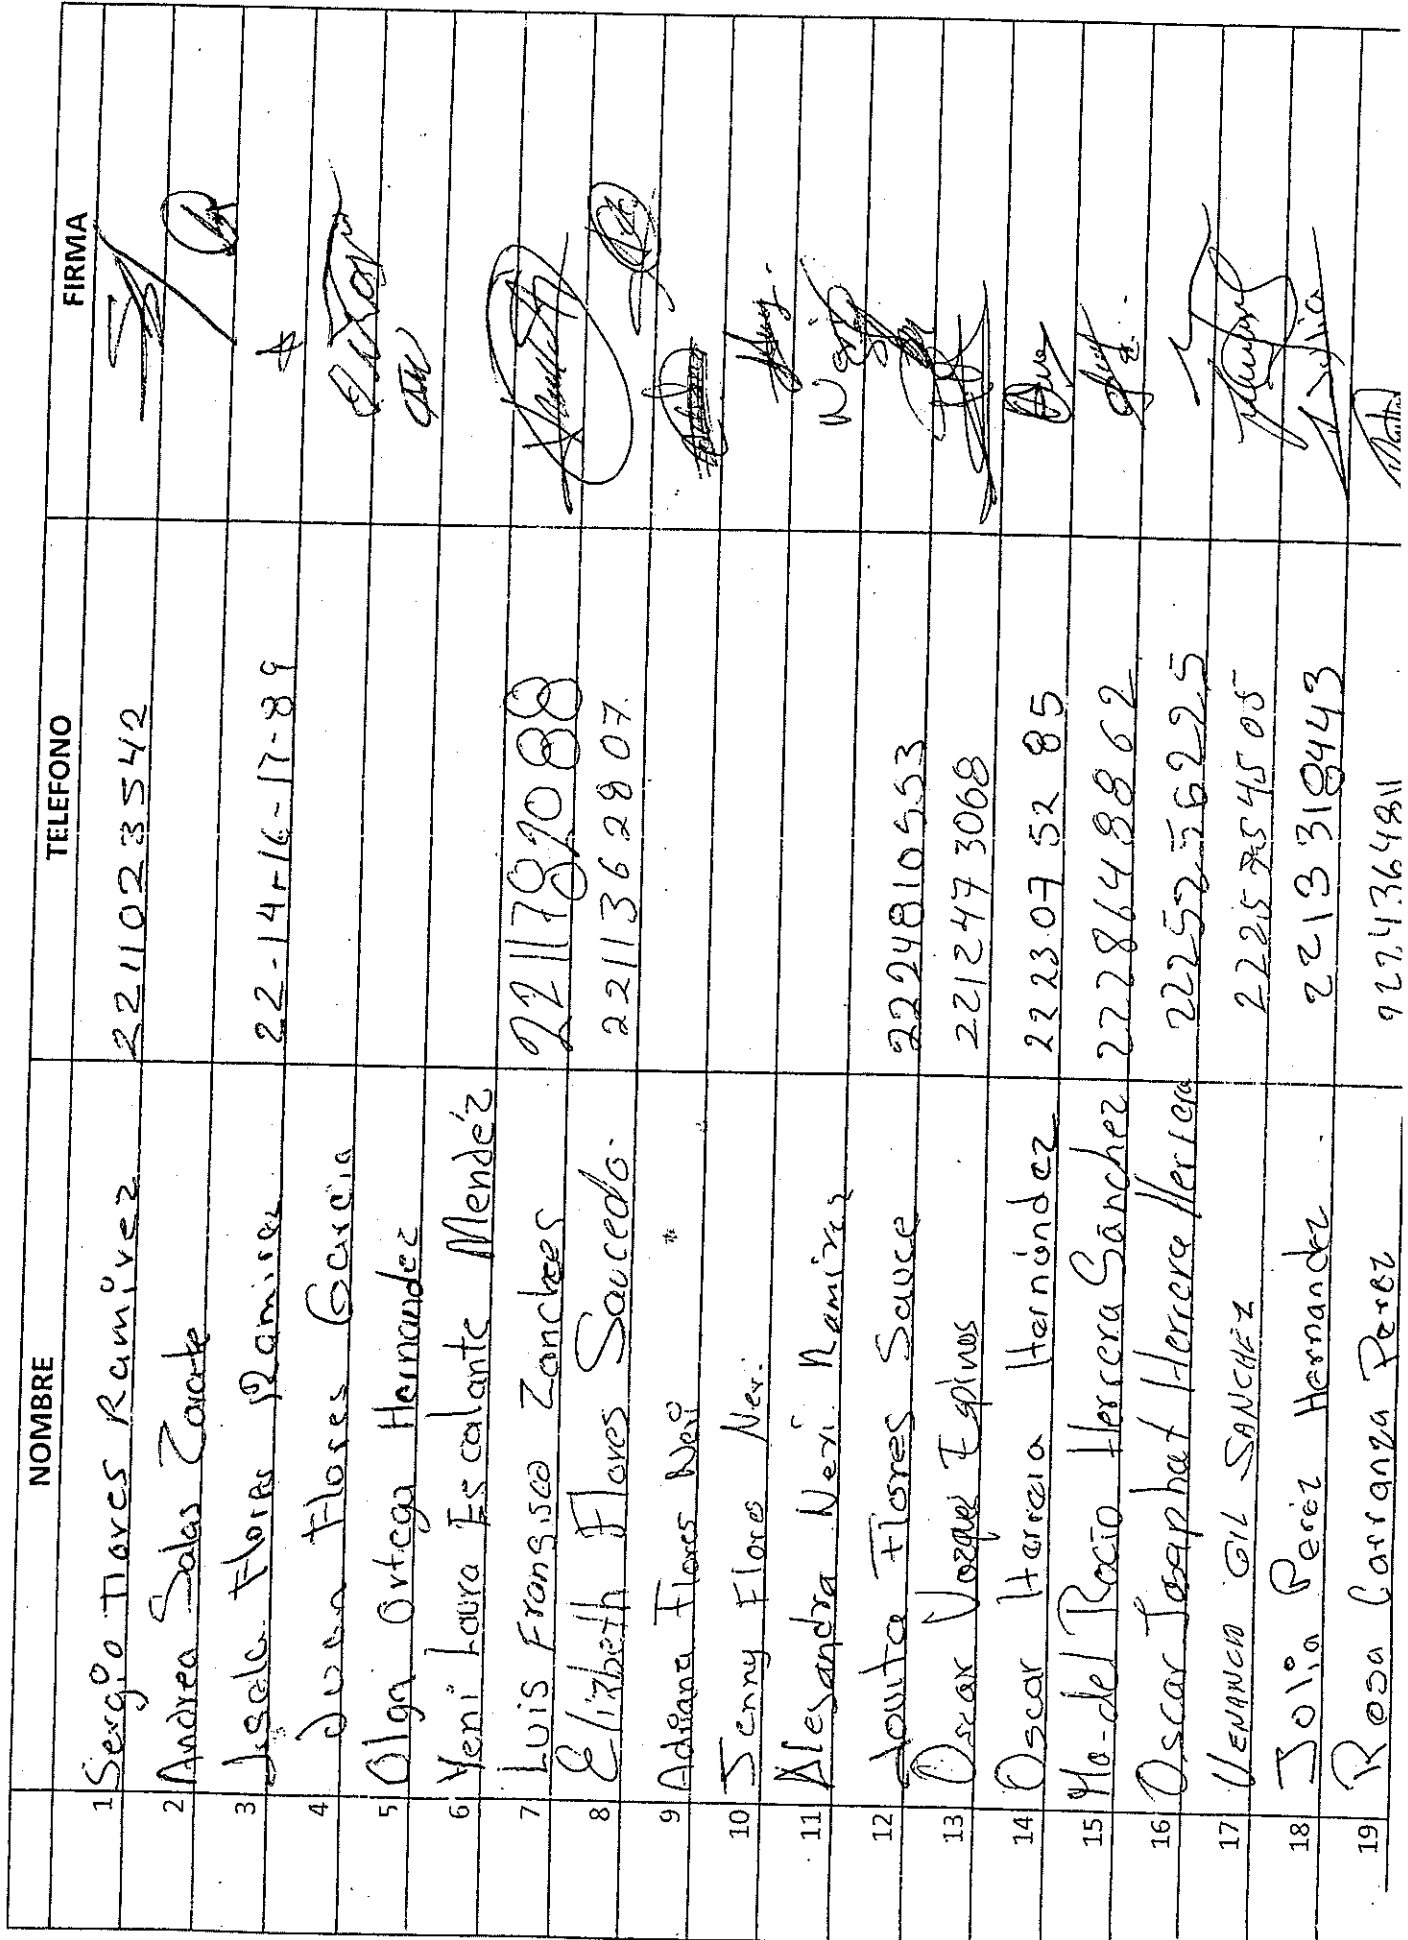 NOMBRE TELEFONO FIRMA
1 Sergio Flores Ramírez 2211023542
2 Andrea Salas Zarate
3 Flores Ramirez 22-14-16-17-89
4 Juan Flores Garcia
5 Olga Ortega Hernandez
6 Yeni Laura Escalante Mendéz
7 Luis Fransisco Zanches 2211789088
8 Elizbeth Flores Saucedo. 2211362807.
9 Adriana Flores Neri
10 Jenny Flores Neri.
11 Alejandra Neri Ramirez
12 Jovita Flores Sauce 2224810553
13 Oscar Vazquez Espinos 221247 3068
14 Oscar Herrera Hernández 22230752 85
15 Ma-del Rocio Herrera Sánchez 2228648862
16 Oscar Josaphat Herrera Herrera 2225256225
17 VENANCIO GIL SANCHEZ
18 Julia Peréz Hernandez. 2213318443 Julia
19 Rosa Carranza Perez